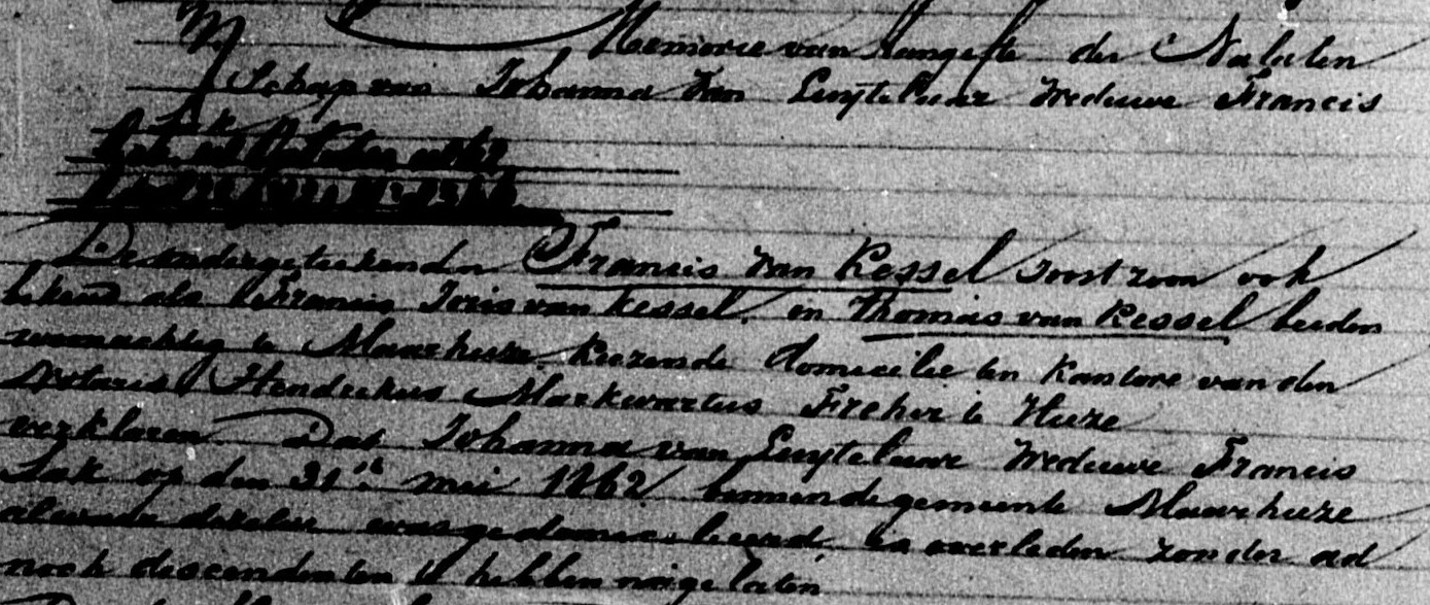 N
Memorie van aangifte der Nalaten
schap van Johanna van Luijtelaar Weduwe Francis
Lak
De ondergeteekenden Francis van Kessel Joostzoon ook
bekend als Francis Joris van Kessel, en Thomas van Kessel beiden
woonachtig te Maarheeze kiezende domicilie ten kantore van den
Notaris Hendrikus Markwartus Freher te Heeze
verklaren Dat Johanna van Luijtelaar Weduwe Francis
Lak op den 31e mei 1862 binnen de gemeente Maarheeze
alwaar dezelve was gedomicilieerd, is overleden zonder ad
noch descendenten te hebben nagelaten